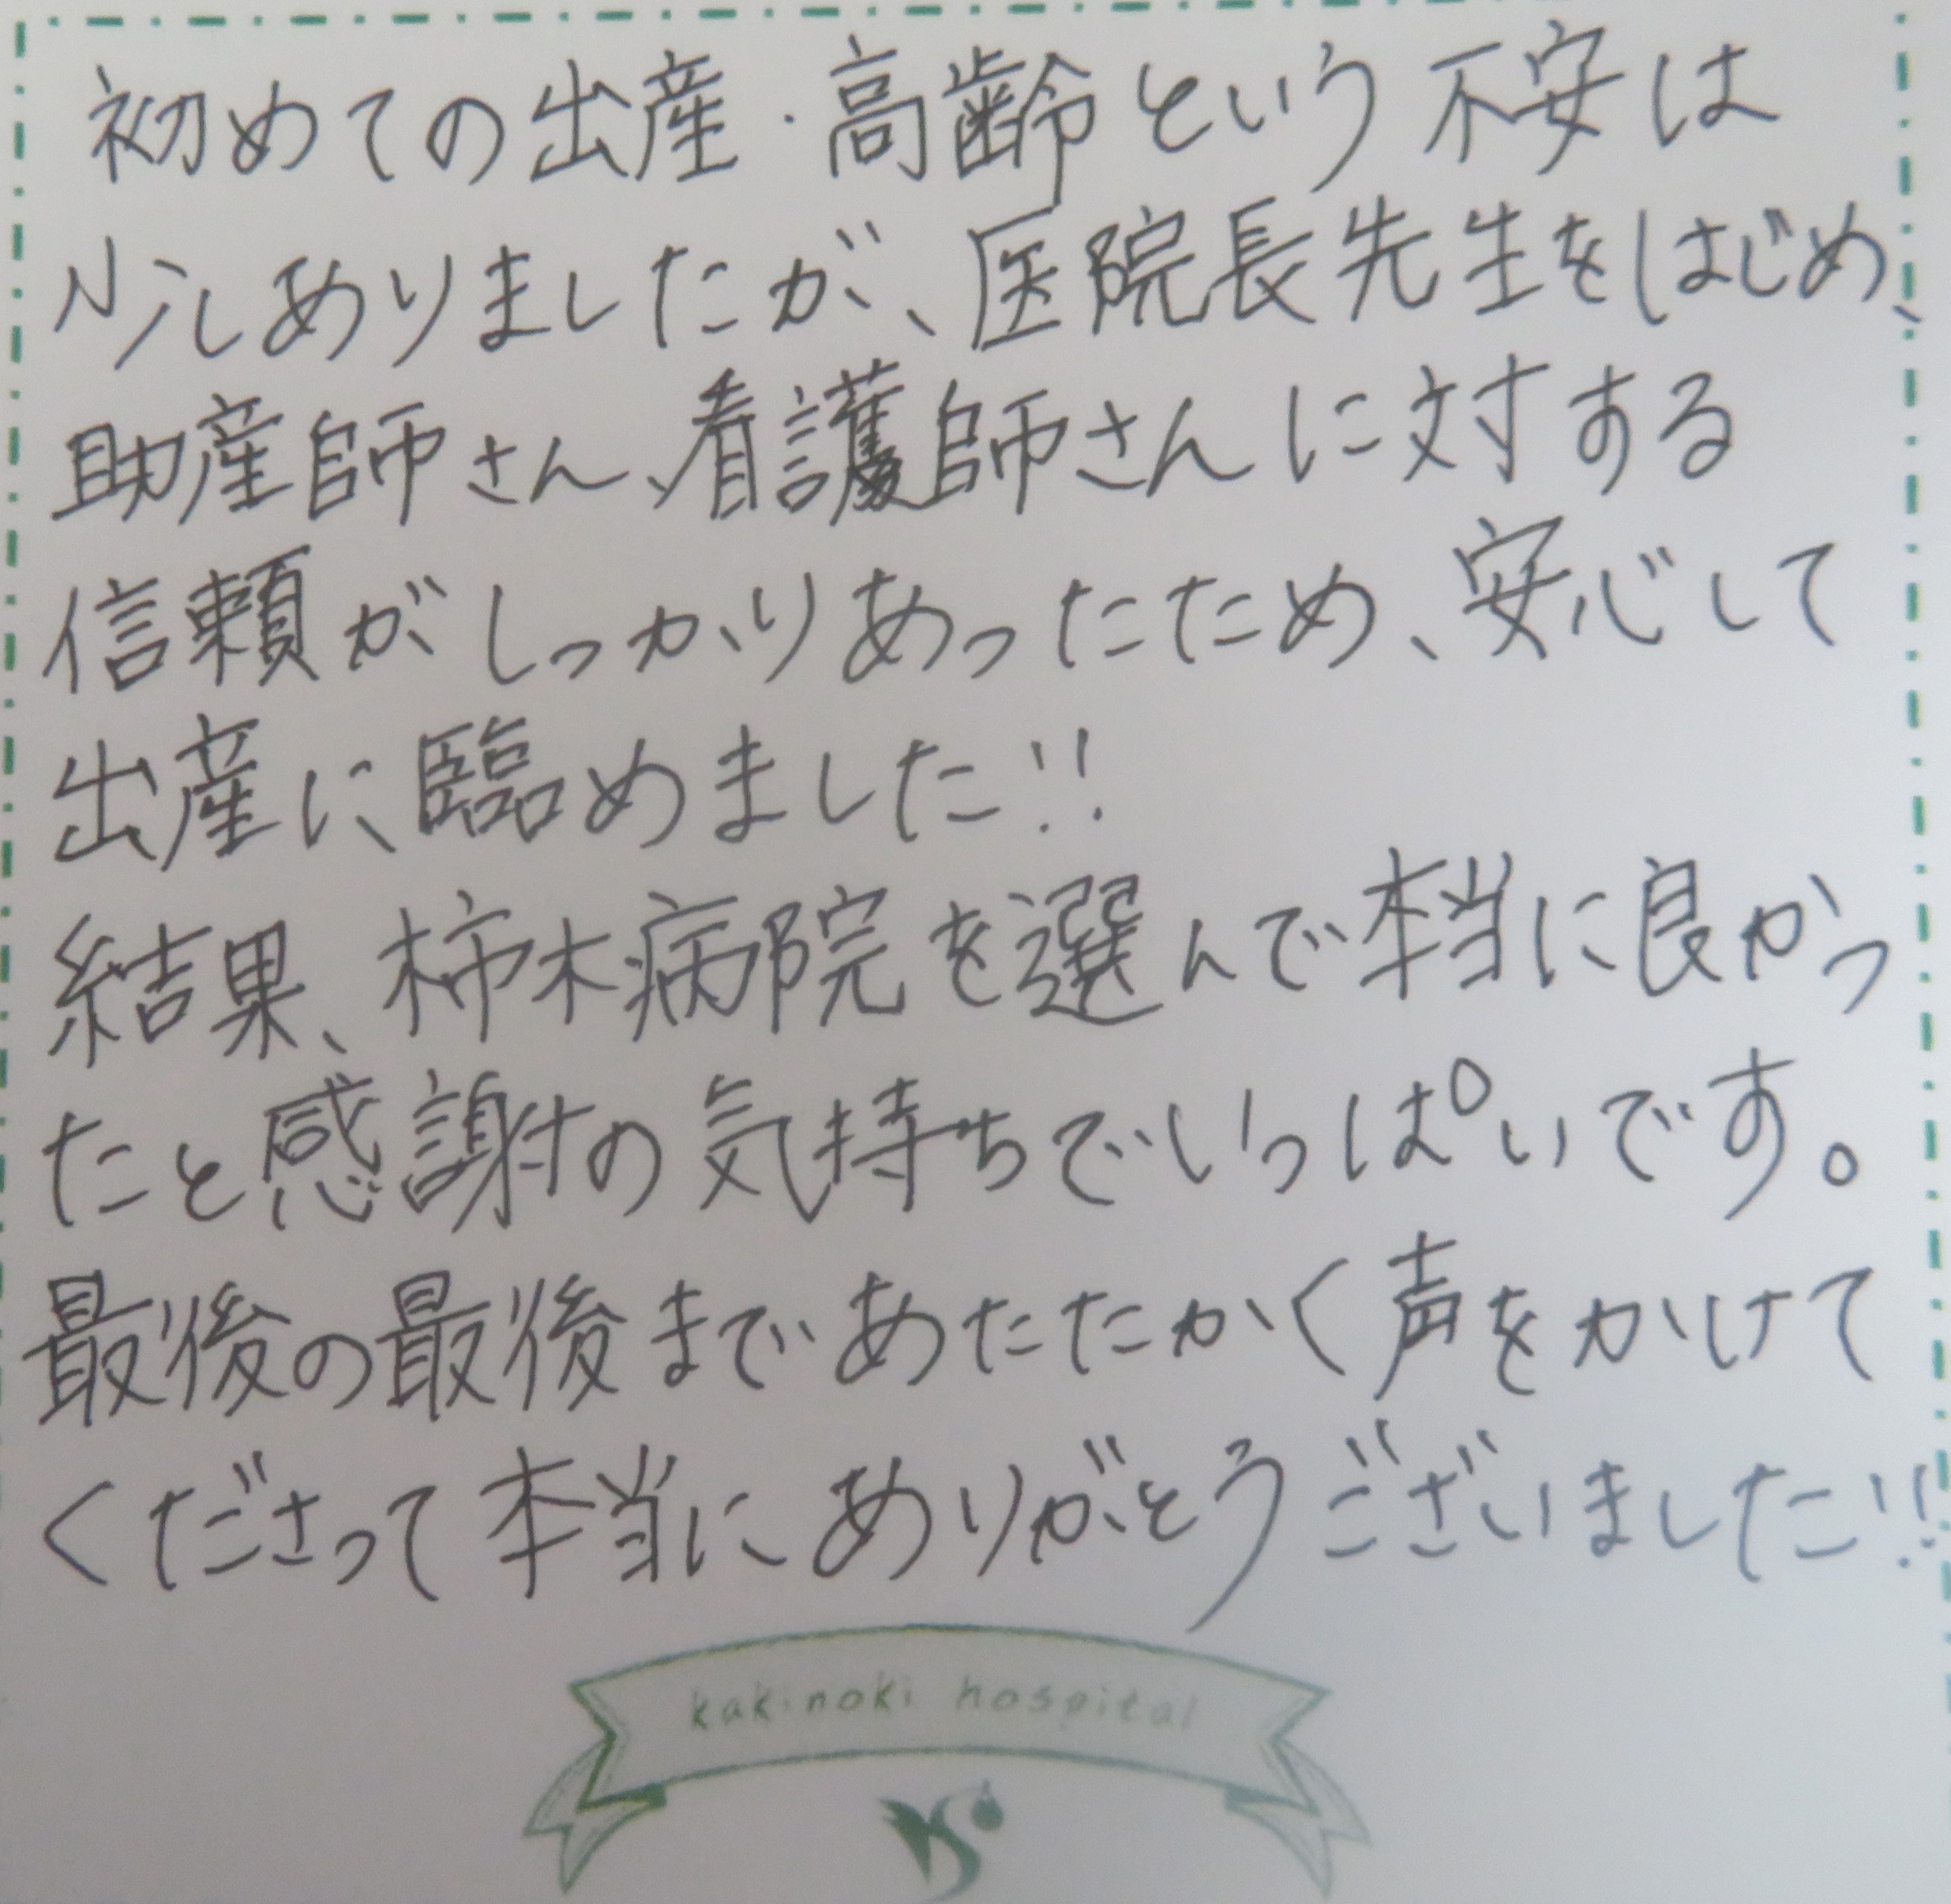 初めての出産・高齢という不安は
少しありましたが、医院長先生をはじめ、
助産師さん、看護師さんに対する
信頼がしっかりあったため、安心して
出産に臨めました!!
結果、柿木病院を選んで本当に良かっ
たと感謝の気持ちでいっぱいです。
最後の最後まであたたかく声をかけて
くださって本当にありがとうございました!!
kakinoki hospital